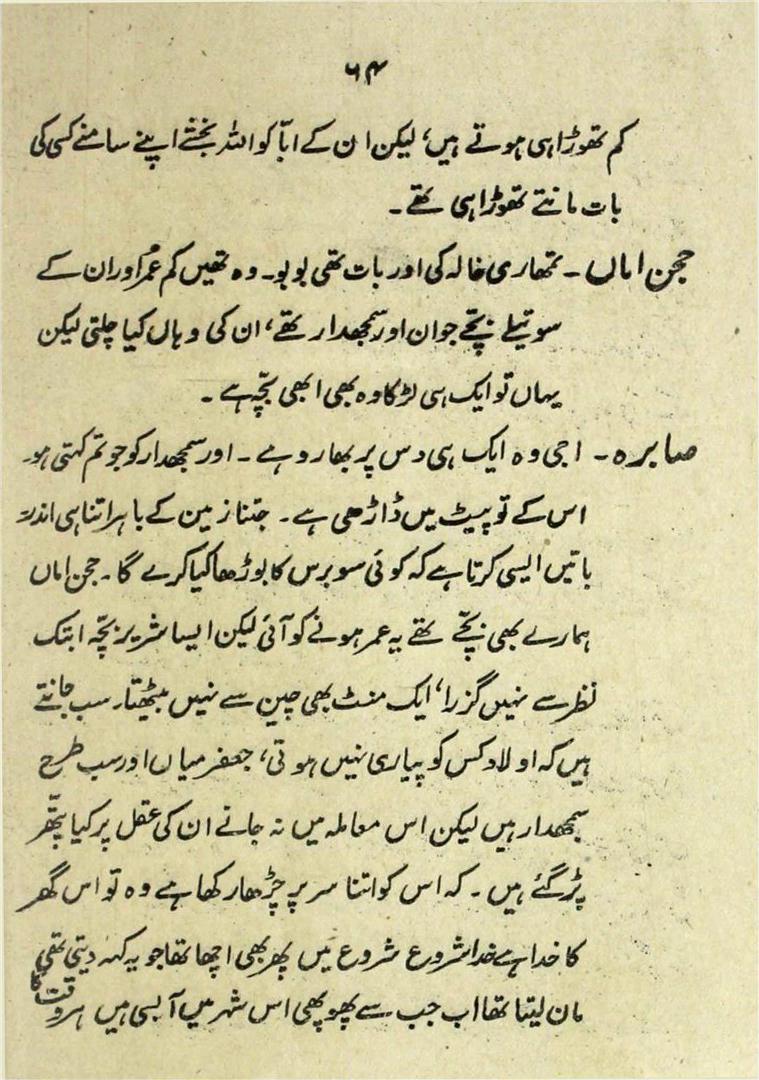 ۶۴
کم تھوڑا ہی ہوتے ہیں، لیکن ان کے ابّا کو اللہ بخشے اپنے سامنے کسی کی
بات مانتے تھوڑا ہی تھے۔
حجن اماں۔ تمھاری خالہ کی اور بات تھی بوبو۔ وہ تھیں کم عمر اور ان کے
سوتیلے بچّے جوان اور سمجھدار تھے، ان کی وہاں کیا چلتی لیکن
یہاں تو ایک ہی لڑکا وہ بھی ابھی بچّہ ہے۔
صابرہ۔ اجی وہ ایک ہی دس پر بھارو ہے۔ اور سمجھدار کو جو تم کہتی ہو۔
اس کے تو پیٹ میں ڈاڑھی ہے۔ جتنا زمین کے باہر اتنا ہی اندر
باتیں ایسی کرتا ہے کہ کوئی سو برس کا بوڑھا کیا کرے گا۔ حجن اماں
ہمارے بھی بچّے تھے یہ عمر ہونے کو آئی لیکن ایسا شریر بچّہ ابتک
نظر سے نہیں گزرا، ایک منٹ بھی چین سے نہیں بیٹھتا۔ سب جانتے
ہیں کہ اولاد کس کو پیاری نہیں ہوتی، جعفر میاں اور سب طرح
سمجھدار ہیں لیکن اس معاملہ میں نہ جانے ان کی عقل پر کیا پتّھر
پڑ گئے ہیں۔ کہ اس کو اتنا سر پر چڑھا رکھا ہے وہ تو اس گھر
کا خدا ہے خدا شروع شروع میں پھر بھی اچھا تھا جو یہ کہہ دیتی تھی
مان لیتا تھا اب جب سے پھوپھی اس شہر میں آ بسی ہیں ہر وقت کا